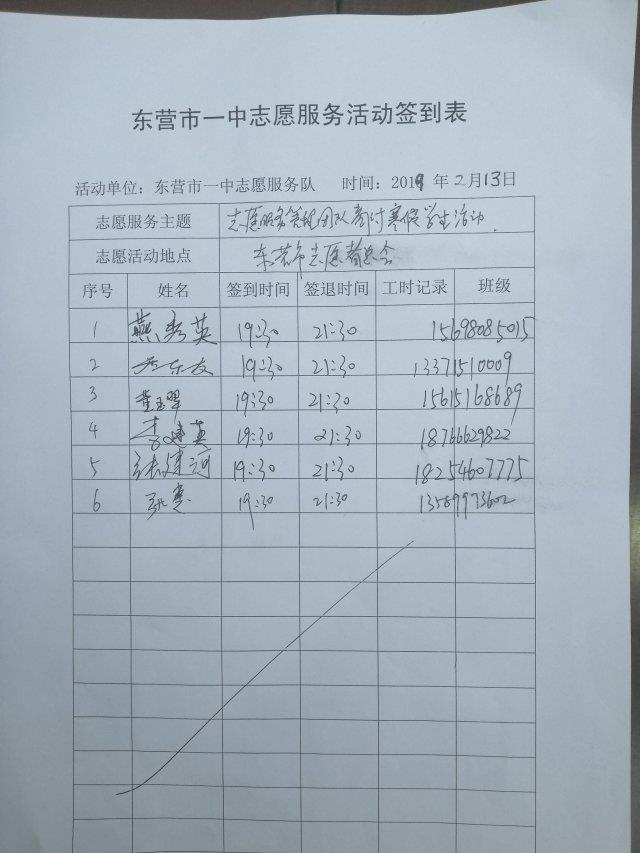 东营市一中志愿服务活动签到表
活动单位：东营市一中志愿服务队 时间：2019 年 2 月 13 日
志愿服务主题 志愿服务管理团队商讨寒假学生活动.
志愿活动地点 东营市志愿者总会
序号 姓名 签到时间 签退时间 工时记录 班级
1 燕秀英 19:30 21:30 15698085015
2 19:30 21:30 13371510009
3 董玉翠 19:30 21:30 15615168689
4 李建英 19:30 21:30 18766629822
5 张建河 19:30 21:30 18254607775
6 19:30 21:30 13589973602